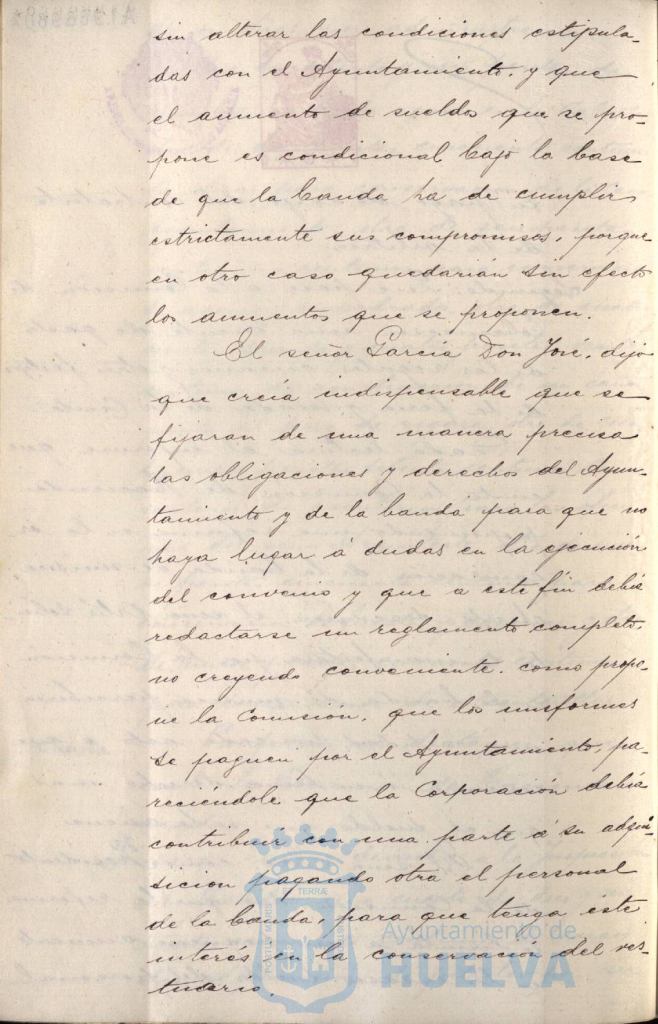 sin alterar las condiciones estipula-
das con el Ayuntamiento, y que
el aumento de sueldos que se pro-
pone es condicional bajo la base
de que la banda ha de cumplir
estrictamente sus compromisos, porque
en otro caso quedarían sin efecto
los aumentos que se proponen.
El señor García Don José, dijo
que creía indispensable que se
fijaran de una manera precisa
las obligaciones y derechos del Ayun-
tamiento y de la banda para que no
haya lugar á dudas en la ejecución
del convenio y que a este fin debía
redactarse un reglamento completo,
no creyendo conveniente, como propo-
ne la Comisión, que los uniformes
se paguen por el Ayuntamiento, pa-
reciéndole que la Corporación debía
contribuir con una parte á su adqui-
sicion pagando otra el personal
de la banda, para que tenga este
interés en la conservación del ves-
tuario.
Ayuntamiento de
HUELVA